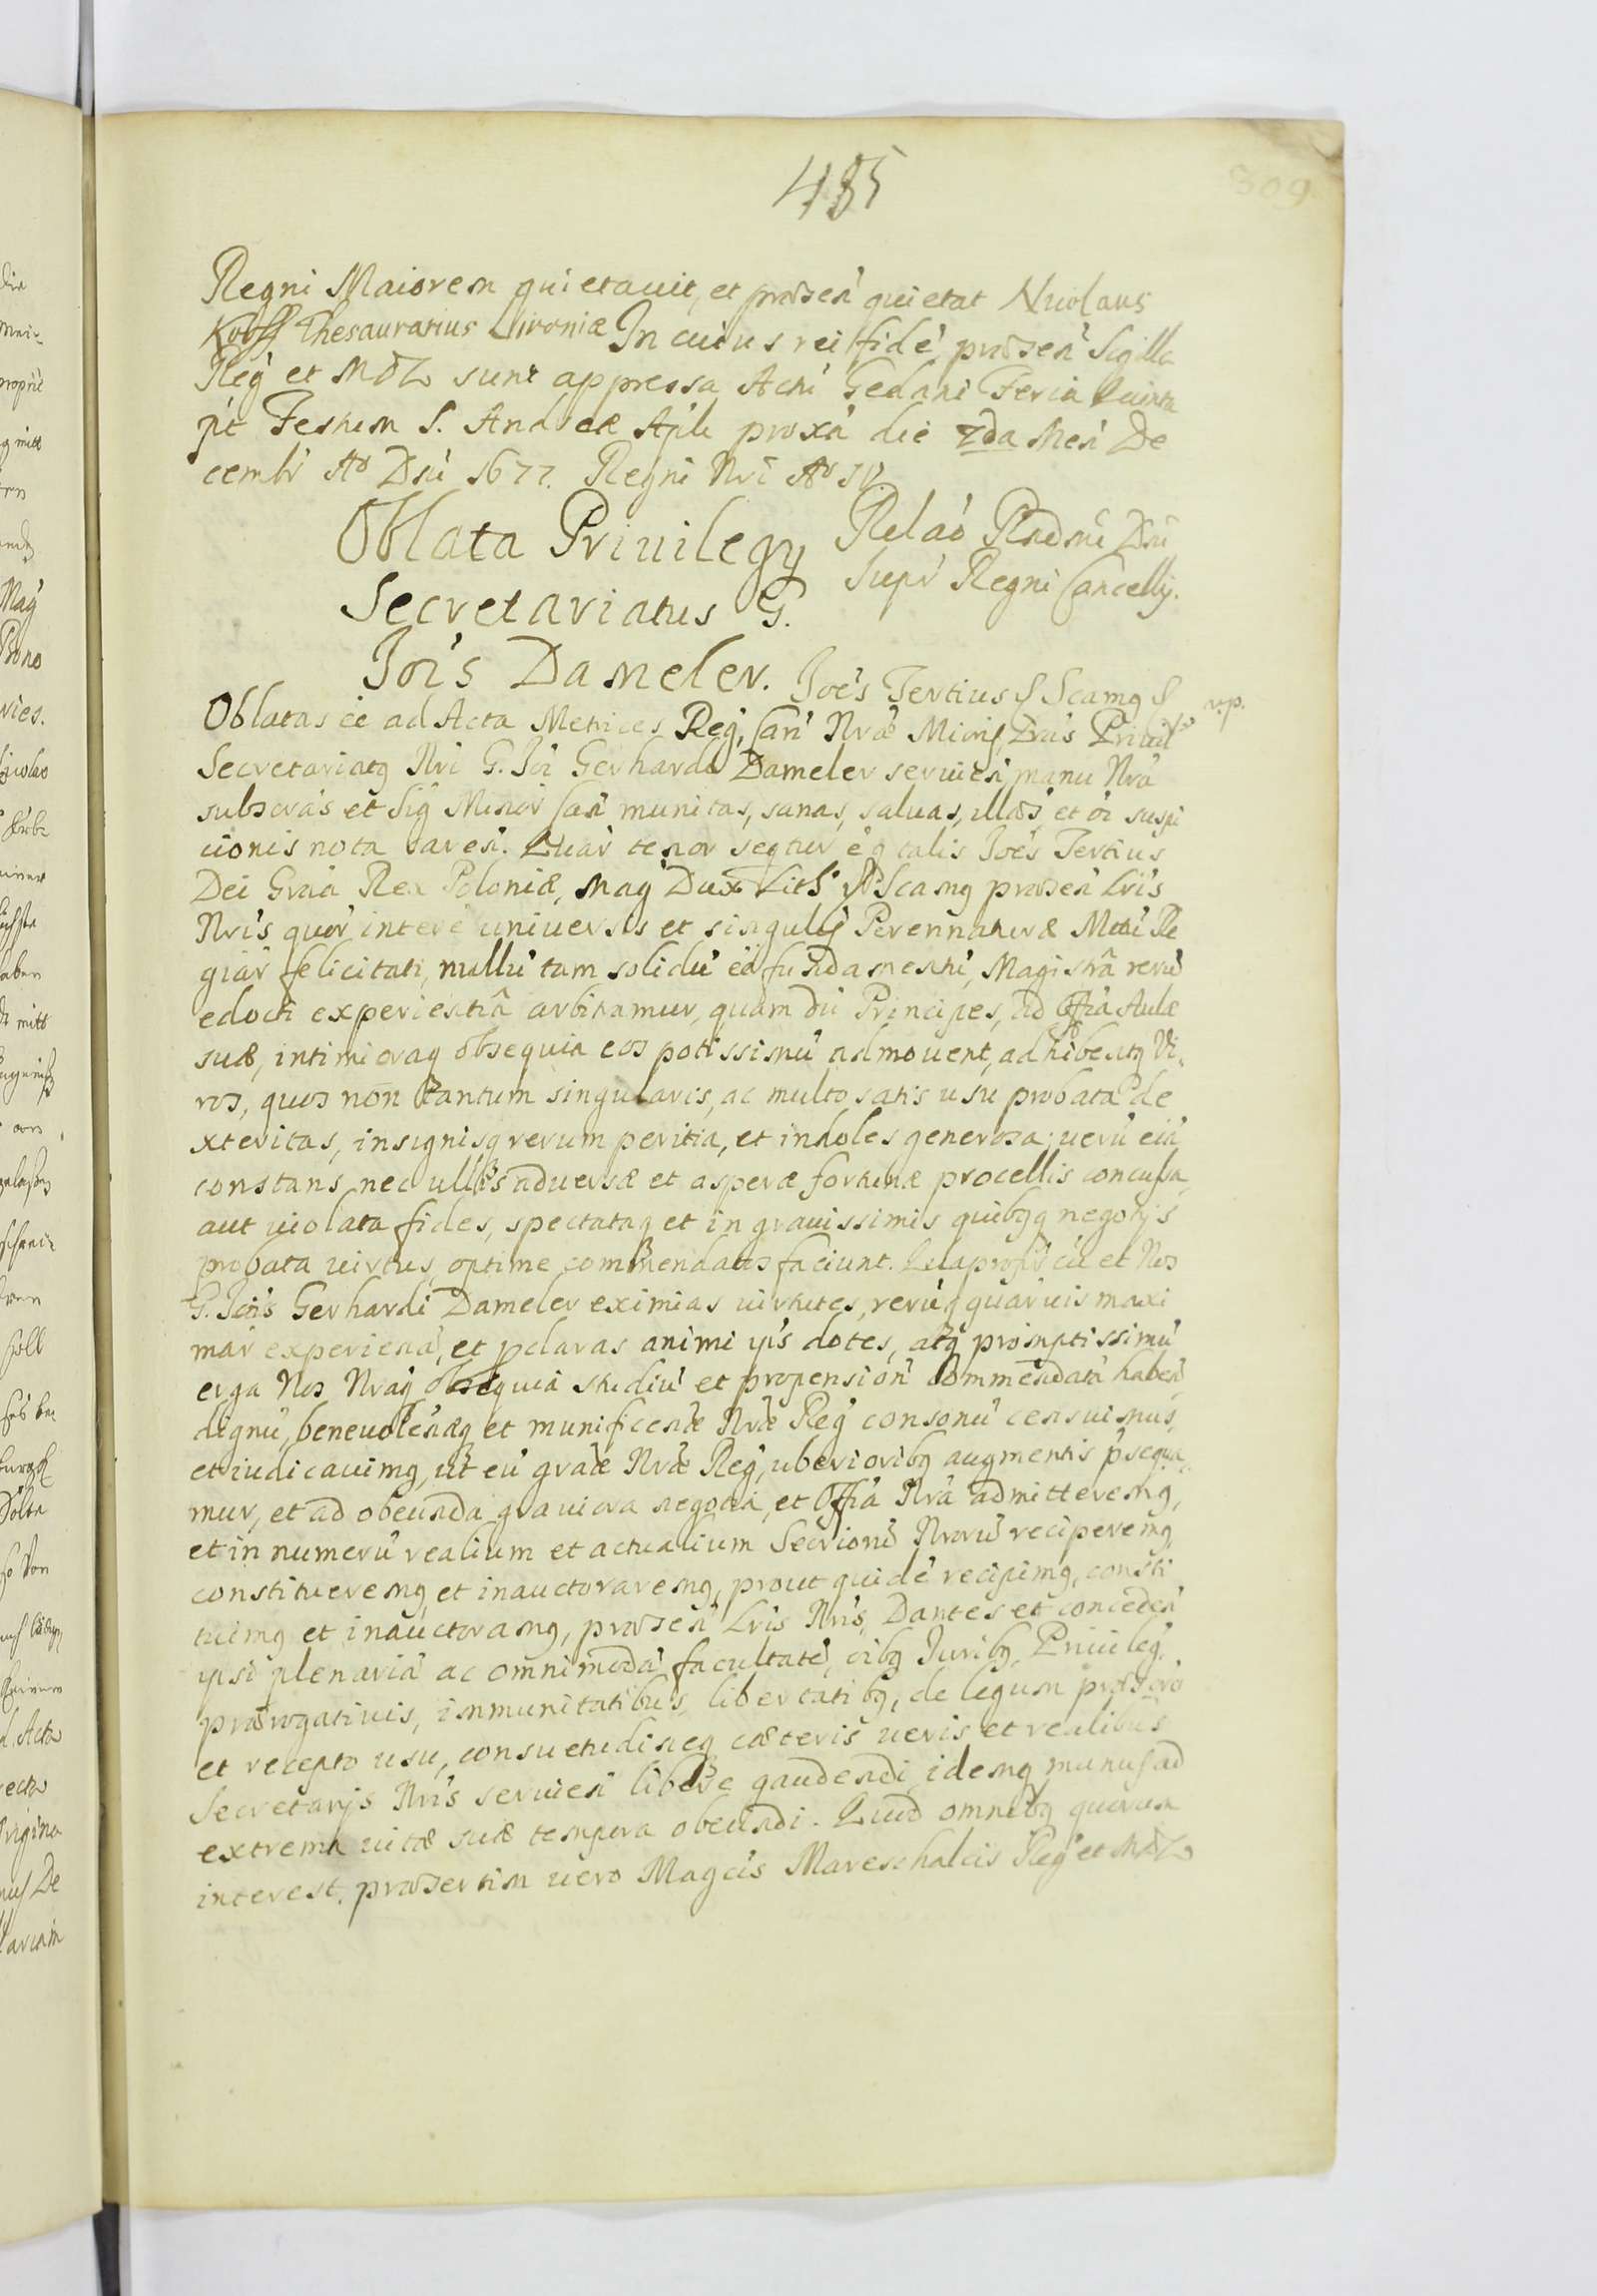 485
809
Regni Maiorem quietauit, et præsen̄ quietat Nicolaus
Korff Thesaurarius Livoniæ In cuius rei fidē præsen̄ Sigilla
Reg̃ et MDL sunt appressa Actū Gedani Feria Quinta
pt̃ Festum S. Andreæ Apli proxā die 2da Men̄ De
cembr̃ Ao Dn̄i 1677. Regni Nri Ao IV.
Relaō Rndmi Dn̄i
Supr̃ Regni Cancellij.
Oblata Priuilegy
Secretariatus G.
Iōis Dameler.
Joēs Tertius S Scamq S
v.p.
Oblatas eē ad Acta Metrices Reg̃, Can̄ Nræ Minris, Lrās Priuil
Secretariatq Nri G. Iōi Gerhardo Dameler seruien̄, manu Nrā
subscrās et Sig̃ Minor Can̄ munitas, sanas, saluas, illæs, et ōi suspi
cionis nota caren̄. Quar̃ tenor seqtur ē q talis Joēs Tertius
Dei Gratiā Rex Poloniæ, Mag̃ Dux Lith̃ Scamq præsen̄ Lrīs
Nrīs quor̃ interē universis et singulis Perennaturæ Mttū Re
giar̃ felicitati, nullū tam solidū eē fundamentū, Magistrâ rerū
edocti experientiâ arbitramur, quam dū Principes, ad Offiā Aulæ
suæ, intimioraq obsequia eos potissimū admouent, adhibentq Vi,
ros, quos non tantum singularis, ac multo satis usu probata de
xteritas, insignisq rerum peritia, et indoles generosa; uerū etiā
constans, nec ullis aduersæ et asperæ fortunæ procellis concussa,
aut uiolata fides, spectataq et in grauissimis quibqq negotijs
probata uirtus, optime commendatos faciunt. Quapropr̃ cū et Nos
G. Iōis Gerhardi Dameler eximias uirtutes, rerūq quaruis maxi
mar̃ experien̄ā, et pclaras animi ipīs dotes, atq promptissimū
erga Nos Nraq obsequia studiū et propensiōn̄ commendatā haben̄
dignū, beneuolen̄æq et munificen̄æ Nræ Reg̃ consonū censuimus,
et iudicauimq, ut eū grāæ Nræ Reg̃, uberioribq augmentis psequa,
mur, et ad obeunda grauiora negotia, et Offiā Nrā admitteremq,
et in numerū realium et actualium Secriorū Nrorū reciperemq,
constitueremq et inauctoraremq, prout quidē recipimq, consti
tuimq et inauctoramq, præsen̄ Lrīs Nrīs, Dantes et conceden̄
ipsi plenariā ac omnimodā facultatē, oībq Iuribq, Priuileg̃,
prærogatiuis, immunitatibus, libertatibq, de legum præscro
et recepto usu, consuetudineq cæteris ueris et realibus
Secretarijs Nrīs seruien̄ libere gaudendi, idemq munus ad
extrema uitæ suæ tempora obeundi. Quod omnibq quorum
interest, præsertim uero Magcīs Mareschalcis Reg̃ et MDL